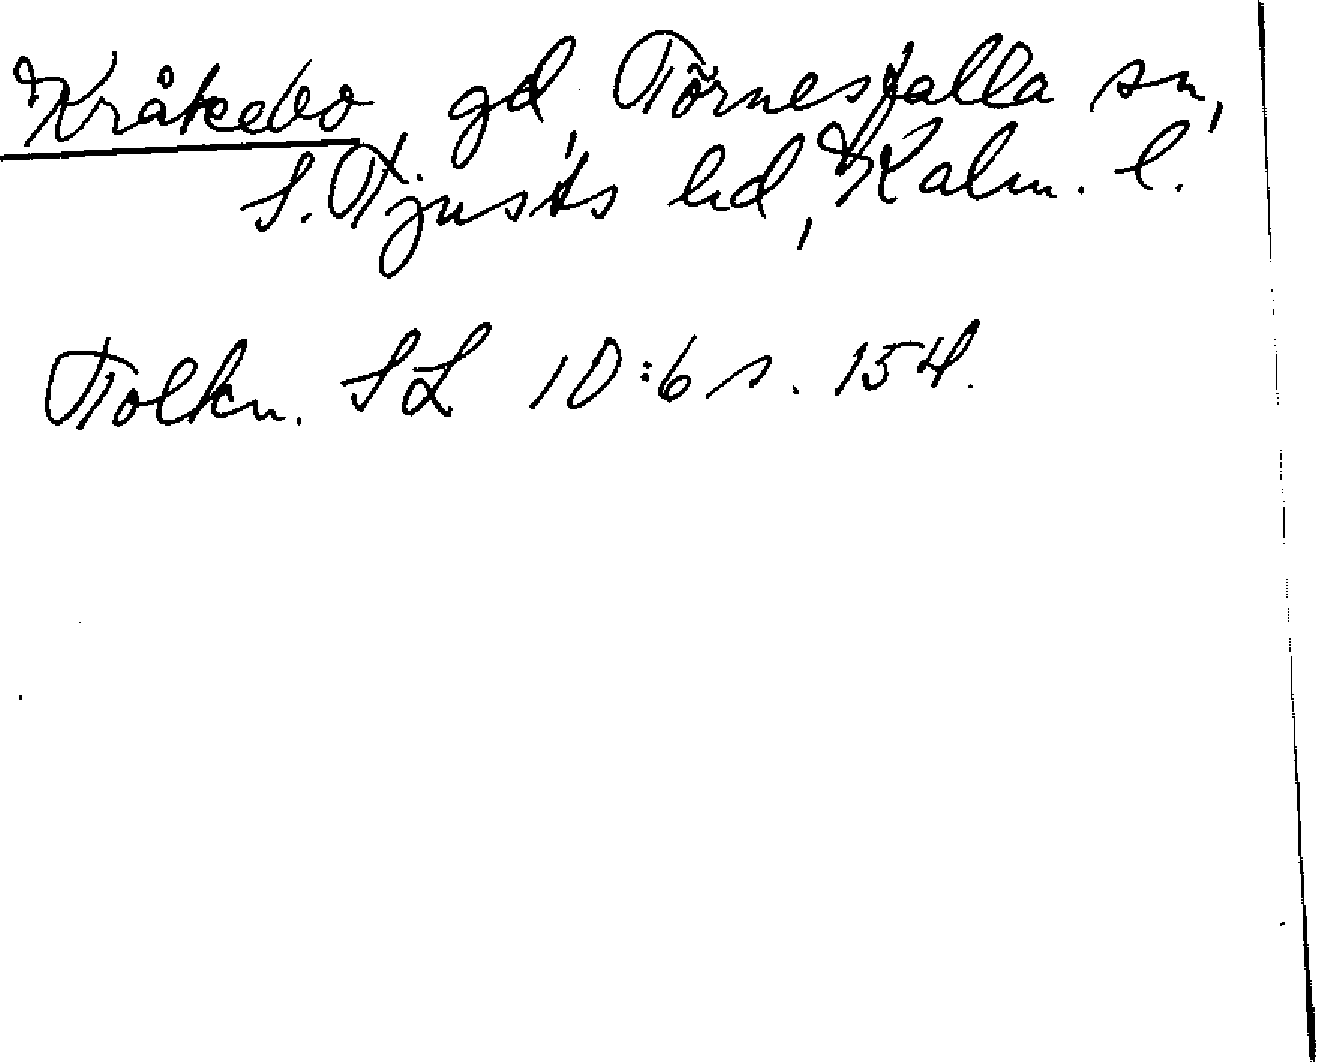 Kråkebo, gd, Törnesfalla sn,
S. Tjusts hd, Kalm. l.
Tolkn. SL 10:6 s. 154.